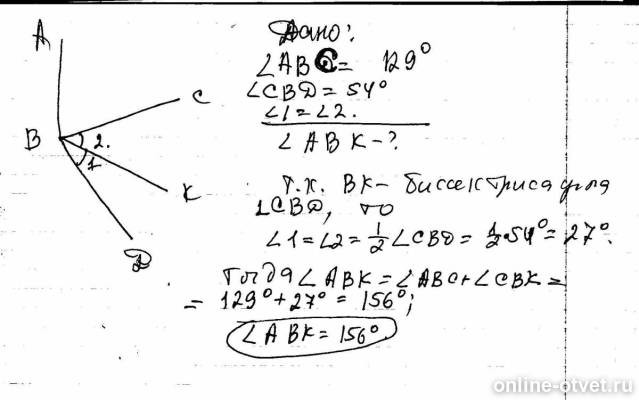 Дано:
A
∠ABC = 129°
∠CBD = 54°
C
∠1 = ∠2.
B
2.
1
∠ABK - ?
K
Т.к. BK - биссектриса угла
∠CBD, то
D
∠1 = ∠2 = 1/2 ∠CBD = 1/2·54° = 27°.
Тогда ∠ABK = ∠ABC + ∠CBK =
= 129° + 27° = 156°;
∠ABK = 156°.
online-otvet.ru